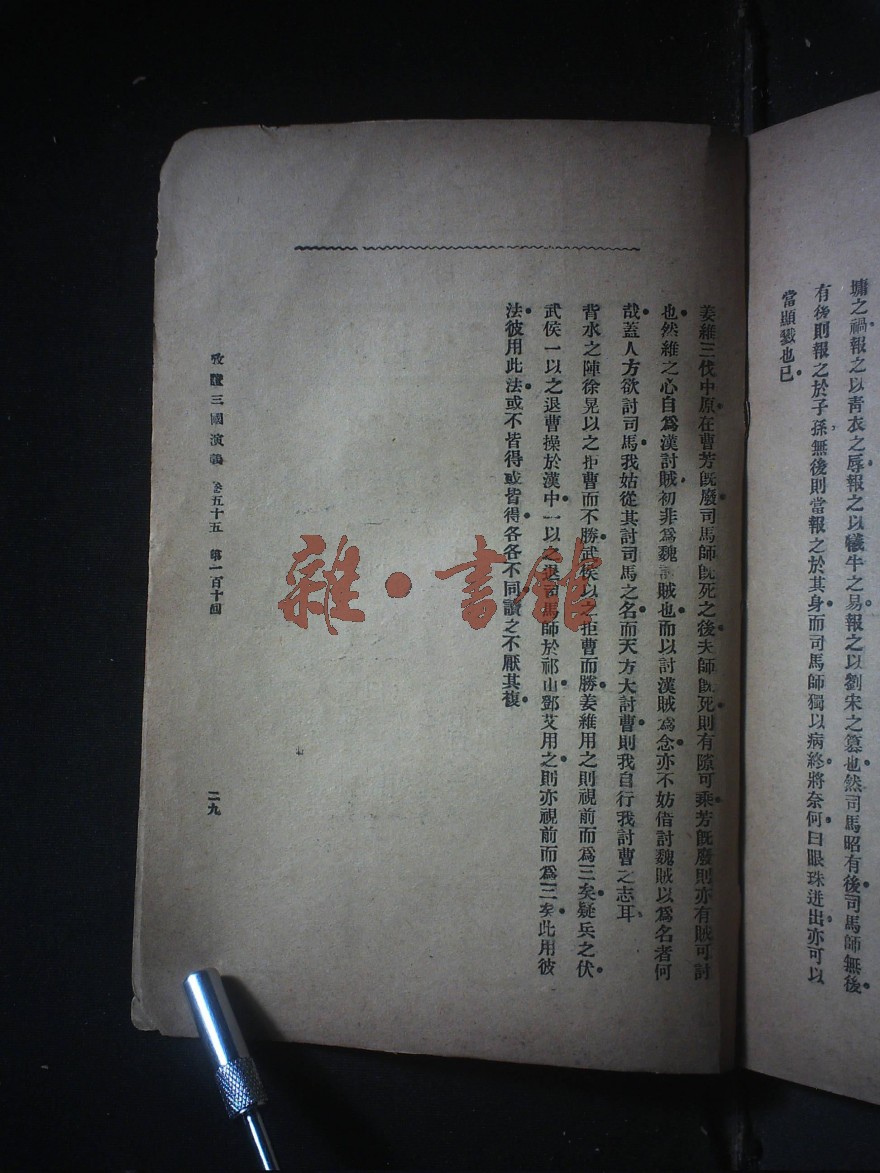 墉之禍報之以青衣之辱報之以犧牛之易報之以劉宋之篡也然司馬昭有後司馬師無後
有後則報之於子孫無後則當報之於其身而司馬師獨以病終將奈何曰眼珠迸出亦可以
當顯戮也已
姜維三伐中原在曹芳既廢司馬師既死之後夫師既死則有隙可乘芳既廢則亦有賊可討
也然維之心自爲漢討賊初非爲魏討賊也而以討漢賊爲念亦不妨借討魏賊以爲名者何
哉蓋人方欲討司馬我姑從其討司馬之名而天方大討曹則我自行我討曹之志耳
背水之陣徐晃以之拒曹而不勝武侯以之拒曹而勝姜維用之則視前而爲三矣疑兵之伏
武侯一以之退曹操於漢中一以之退司馬師於祁山鄧艾用之則亦視前而爲三矣此用彼
法彼用此法或不皆得或皆得各各不同讀之不厭其複
三國演義 卷五十五 第一百十回
二九
雜·書館